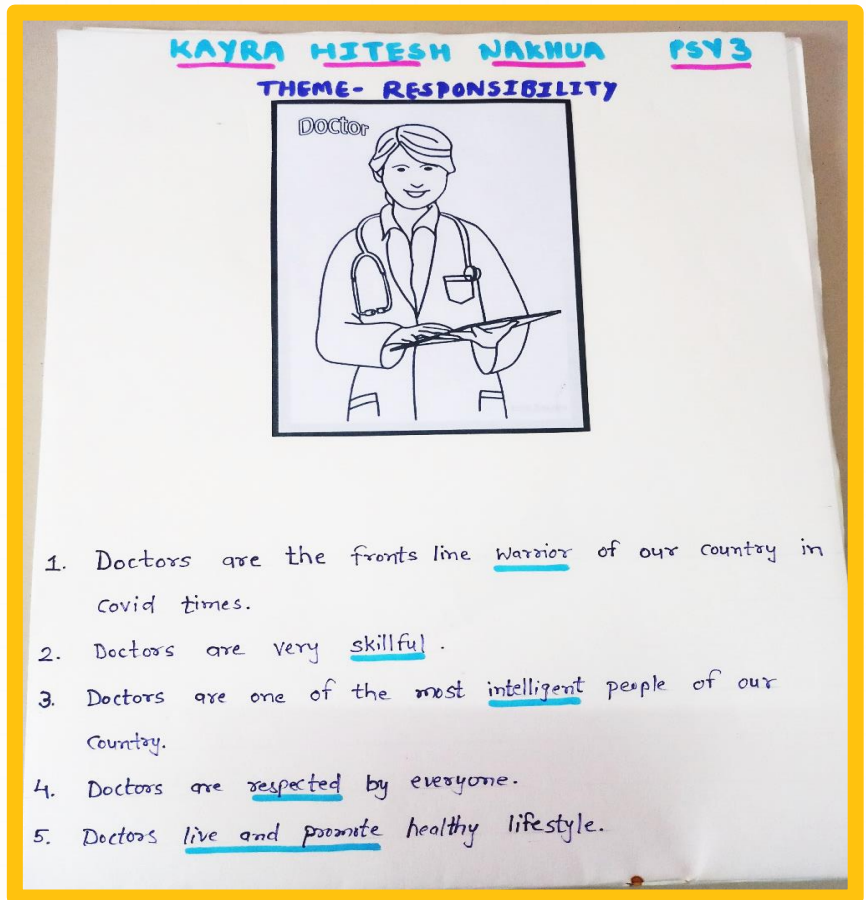 KAYRA HITESH NAKHUA PSY 3
THEME- RESPONSIBILITY
Doctor
1. Doctors are the fronts line warrior of our country in
Covid times.
2. Doctors are very skillful.
3. Doctors are one of the most intelligent people of our
Country.
4. Doctors are respected by everyone.
5. Doctors live and promote healthy lifestyle.